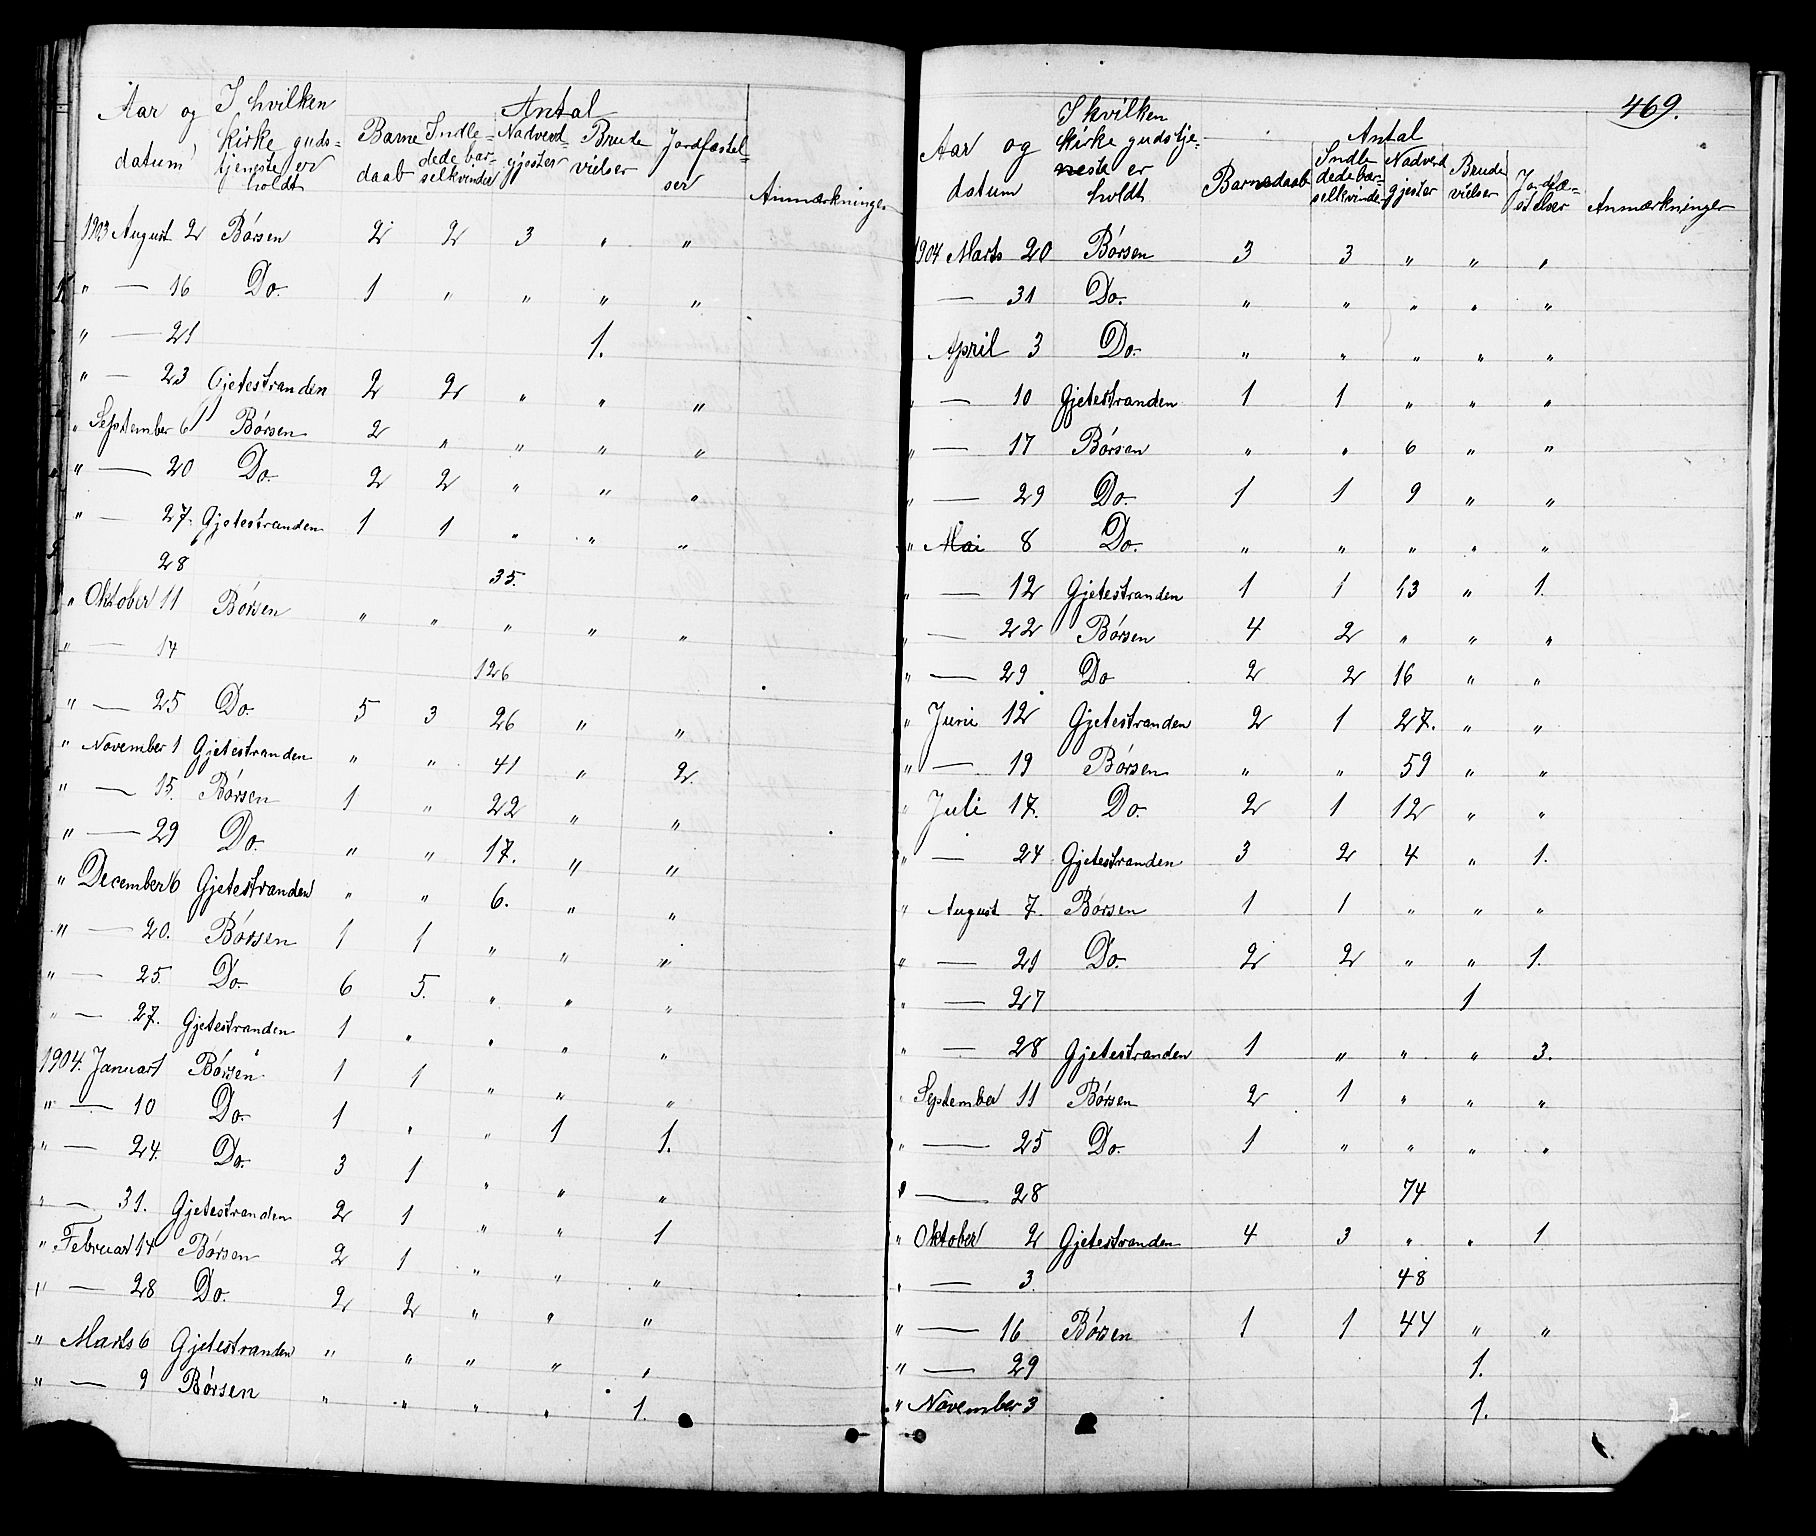 Aar og datum | I hvilken kirke guds-tjeneste er holdt | Antal | Anmærkninger
Barne daab | Indle-dede bar-selkvinder | Nadverd-gjester | Brude vielser | Jordfæstel-ser
1903 August 2 Børsen 2 2 3 " "
" — 16 Do. 1 " " " "
" — 21 1.
" — 23 Gjetestranden 2 2 " " "
" September 6 Børsen 2 " " " "
" — 20 Do. 2 2 " " "
" — 27. Gjetestranden 1 1 " " "
28 35.
" Oktober 11 Børsen " " " " "
" — 14 126
" — 25 Do. 5 3 26 " "
" November 1 Gjetestranden " " 41 " 2.
" — 15. Børsen 1 " 22 " "
" — 29 Do. " " 17. " "
" December 6 Gjetestranden " " 6. " "
" — 20. Børsen 1 1 " " "
" — 25. Do. 6 5. " " "
" — 27. Gjetestranden 1 " " " "
1904. Januar 1 Børsen 1 1 " " "
" — 10 Do. 1 " " 1 1.
" — 24. Do. 3 1 " " "
" — 31. Gjetestranden 2 1 " " 1
" Februar 14 Børsen 2 1 " " "
" — 28 Do. 2 2 " " "
" Marts 6 Gjetestranden " " " " "
" — 9 Børsen " " " " 1.
469.
Aar og datum | I hvilken kirke gudstje-neste er holdt | Antal | Anmærkninger
Barnedaab | Indle dede bar-selkvinder | Nadverd gjester | Brude vielser | Jordfæ-stelser
1904 Marts 20 Børsen 3 3 " " "
— 31 Do. " " " " "
April 3 Do. " " " " "
" — 10 Gjetestranden 1 1 " " "
" — 17 Børsen " " 6 " "
" — 29 Do. 1 1 9 " "
" Mai 8 Do. " " " " "
" — 12 Gjetestranden 1 1 13 " 1.
" — 22 Børsen 4 2 " " "
" — 29 Do 2 2 16 " "
" Juni 12 Gjetestranden 2 1 27. " "
" — 19 Børsen " " 59 " "
" Juli 17. Do. 2 1 12 " "
" — 24 Gjetestranden 3 2 4 " 1.
" August 7. Børsen 1 1 " " "
" — 21 Do. 2 2 " " 1.
" — 27 1
" — 28 Gjetestranden 1 " " " 3.
" September 11 Børsen 2 1 " " "
" — 25 Do. 1 " " " "
" — 28 74
" Oktober 2 Gjetestranden 4 3 " " 1
" — 3. 48
" — 16 Børsen 1 1 44 " "
" — 29 1.
" November 3 1.